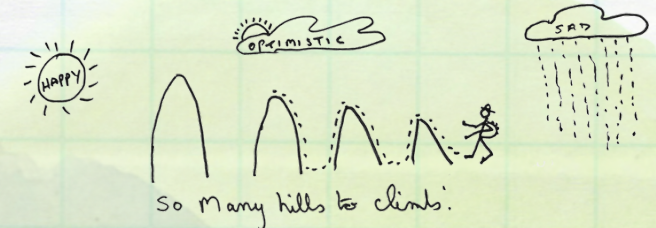 HAPPY
OPTIMISTIC
SAD
So Many hills to climb!